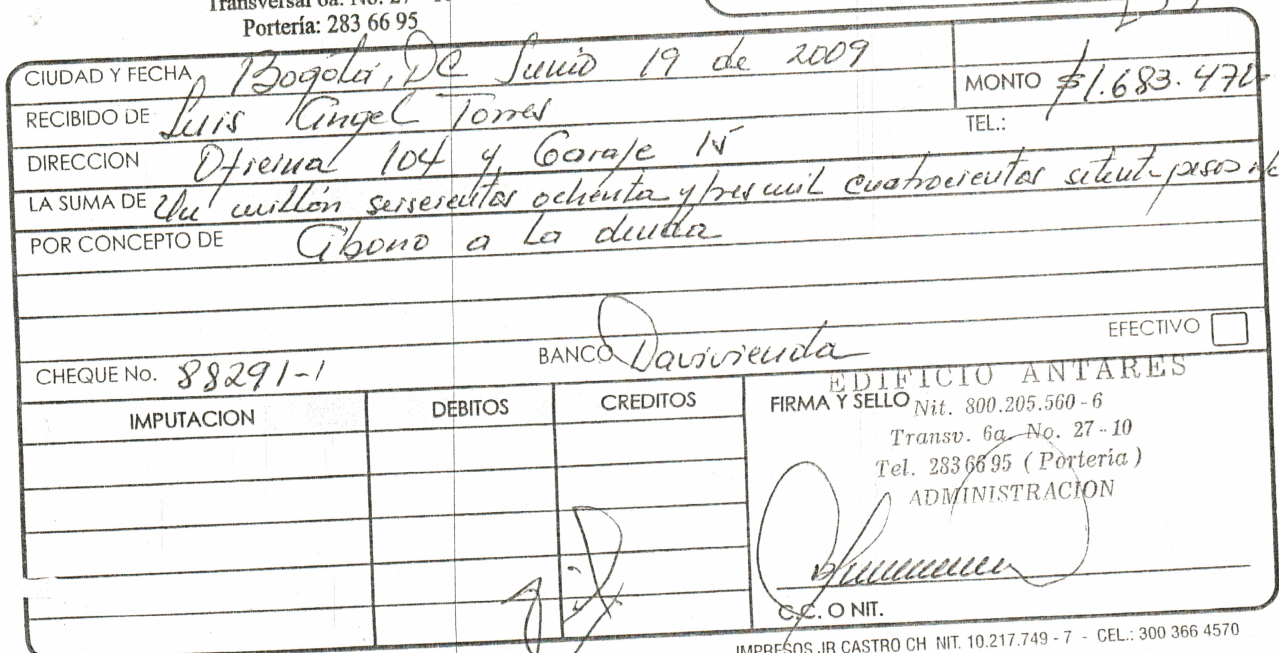 Transversal 6a. No. 27 -
Portería: 283 66 95
CIUDAD Y FECHA Bogotá, DC Junio 19 de 2009
MONTO $1.683.472
RECIBIDO DE Luis Angel Torres
TEL.:
DIRECCION Oficina 104 y Garaje 15
LA SUMA DE Un millón seiscientos ochenta y tres mil cuatrocientos setent pesos
POR CONCEPTO DE Abono a la deuda
EFECTIVO
CHEQUE No. 88291-1 BANCO Davivienda
IMPUTACION DEBITOS CREDITOS
EDIFICIO ANTARES
FIRMA Y SELLO Nit. 800.205.560-6
Transv. 6a. No. 27-10
Tel. 283 66 95 (Porteria)
ADMINISTRACION
C.C. O NIT.
IMPRESOS JR CASTRO CH NIT. 10.217.749 - 7 - CEL.: 300 366 4570